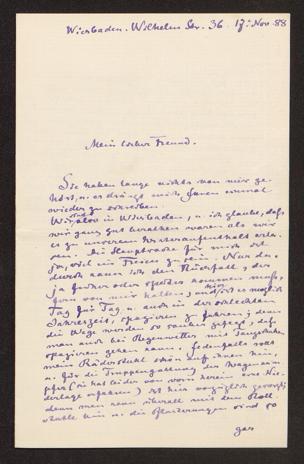 Wiesbaden. Wilhelm Str. 36. 17. Nov. 88
Mein lieber Freund.
Sie haben lange nichts von mir ge-
hört, u. es drängt mich Ihnen einmal
wieder zu schreiben.
Wir sind also in Wiesbaden, u. ich glaube, dass
wir ganz gut berathen waren als wir
es zu unserem Winteraufenthalt erko-
ren. Die Hauptsache für mich ist
ja, viel im Freien zu sein. Nur da-
durch kann ich den Rückfall, der
ja früher oder später kommen muss,
fern von mir halten; und hier ist es möglich
Tag für Tag u. auch in der schlechten
Jahreszeit, spazieren zu fahren; denn
die Wege werden so sauber gefegt, dass
man auch bei Regenwetter
spazieren gehen kann; jedenfalls rollt
mein Räderstuhl schön auf ihnen hin,
u. für die Truppengattung der Wagen
hier
denn man kann überall mit dem Roll-
stuhle hin u. die Pflasterungen sind so
gar